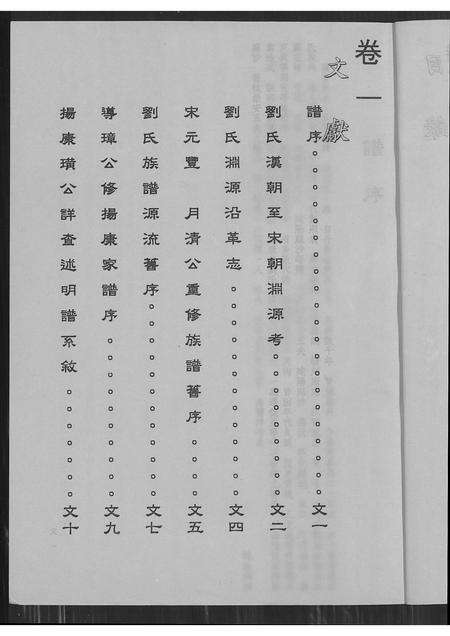 卷一
文獻
譜序。。。。。。。。。。。。。。文一
劉氏漢朝至宋朝淵源考。。。。。。文二
劉氏淵源沿革志。。。。。。。。。文四
宋元豐　月清公重修族譜舊序。。。文五
劉氏族譜源流舊序。。。。。。。。文七
導璋公修揚康家譜序。。。。。。。文九
揚康璜公詳查述明譜系敘。。。。。文十